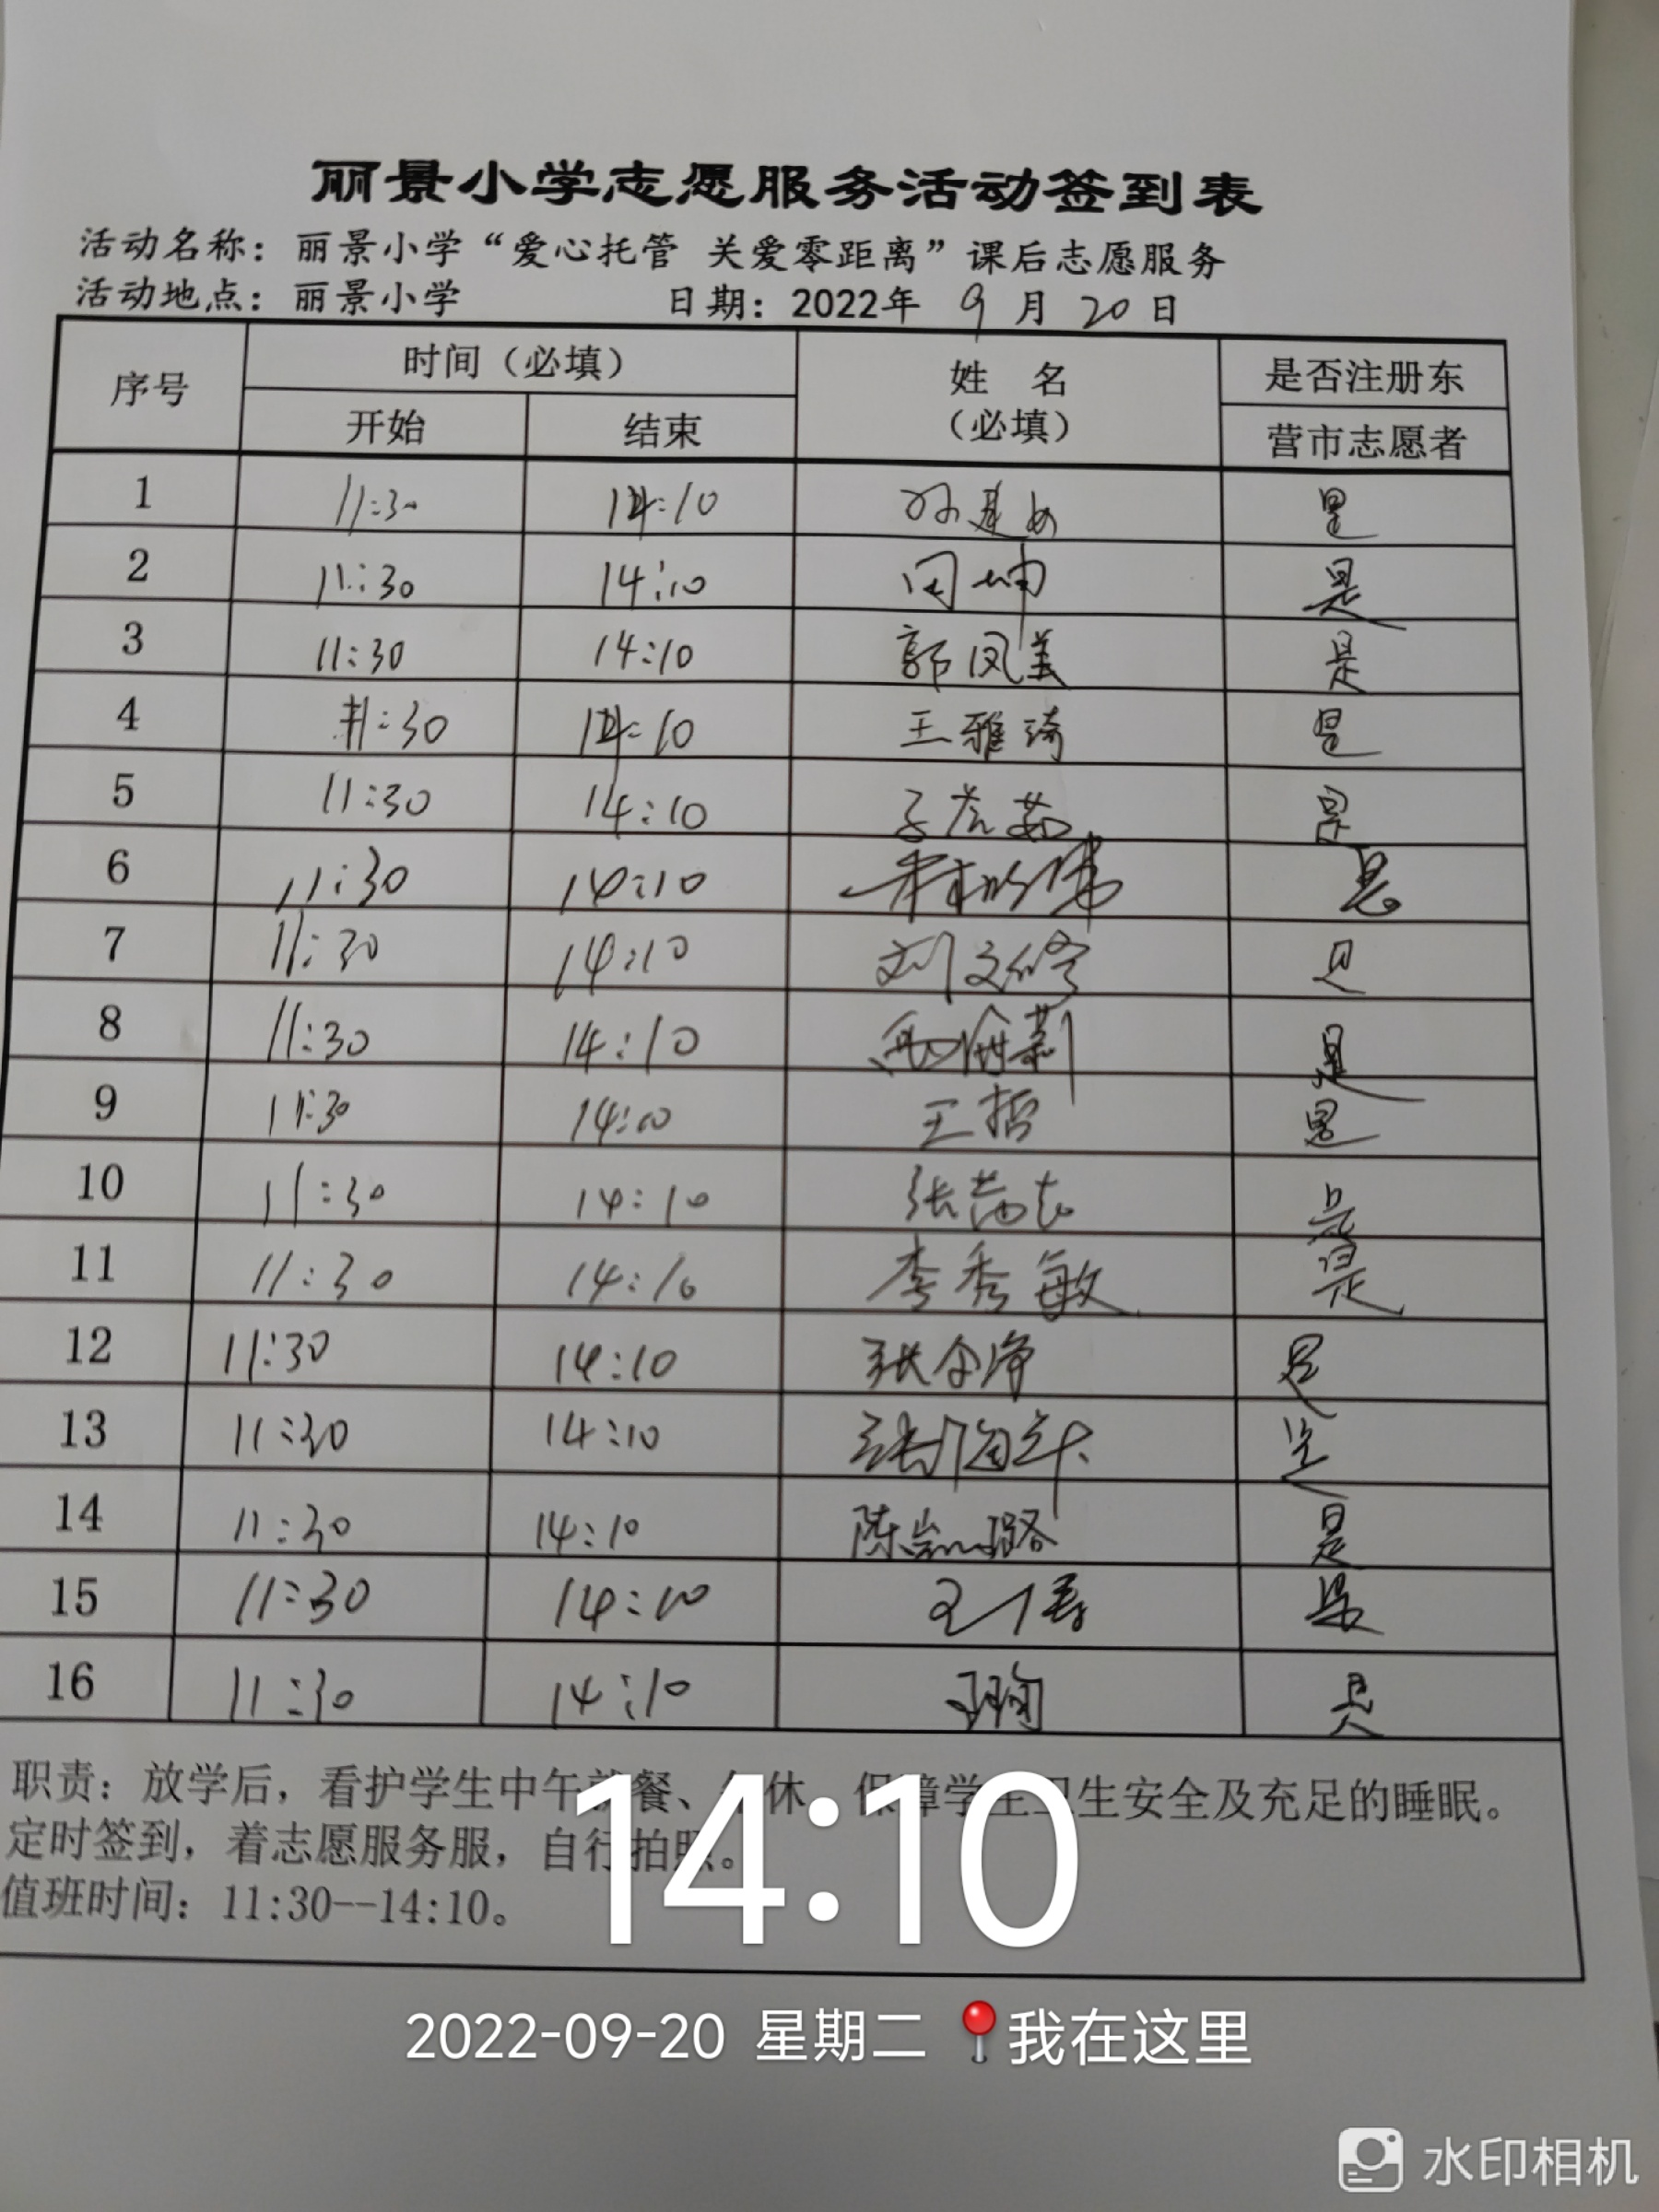 丽景小学志愿服务活动签到表
活动名称：丽景小学“爱心托管 关爱零距离”课后志愿服务
活动地点：丽景小学 日期：2022年 9 月 20 日
序号 时间（必填） 姓 名 是否注册东
开始 结束 （必填） 营市志愿者
1 11:30 14:10 是
2 11:30 14:10 田坤 是
3 11:30 14:10 郭凤美 是
4 11:30 14:10 王雅琦 是
5 11:30 14:10 是
6 11:30 14:10 是
7 11:30 14:10 是
8 11:30 14:10 是
9 11:30 14:10 王哲 是
10 11:30 14:10 是
11 11:30 14:10 李秀敏 是
12 11:30 14:10 是
13 11:30 14:10 是
14 11:30 14:10 陈凯璐 是
15 11:30 14:10 是
16 11:30 14:10 是
职责：放学后，看护学生中午就餐、午休，保障学生卫生安全及充足的睡眠。
定时签到，着志愿服务服，自行拍照。
值班时间：11:30--14:10。
14:10
2022-09-20 星期二 我在这里
水印相机